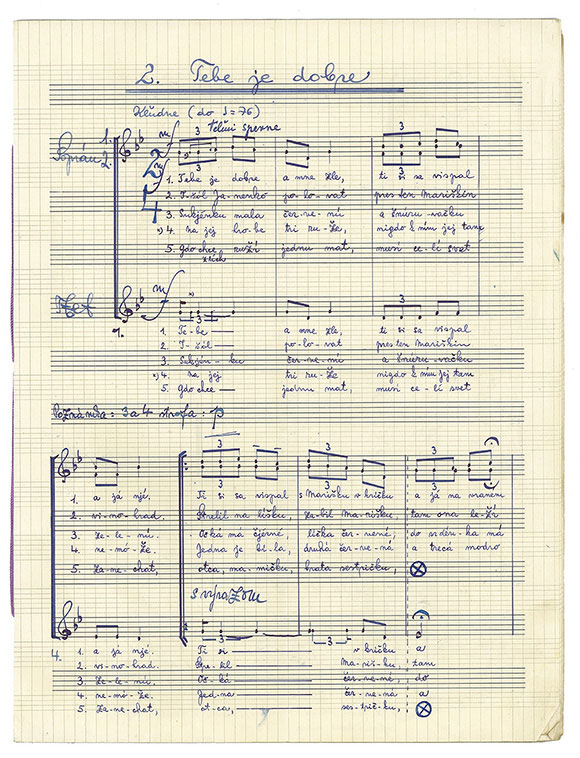 2. Tebe je dobre
Kludne (do ♩=76)
Soprán 1.
2.
mf
3
3
3
Tešňi spevne
2
4
1. Tebe je dobre a mne zle, ti si sa vispal
2. I-šól Ja-nenko po-lo-vat pres ten Mariškin
3. Sukjénku mala čer-ve-nú a šnuru-vačku
4. na jej hro-be tri ru-že, nigdo k ním jej tam
5. Gdo chce ruži jednu mat, musí ce-lí svet
z tích
Alt
mf
3
1. Te-be a mne zle, ti si sa vispal
2. I-šól po-lo-vat pres ten Mariškin
3. Sukjén-ku čer-ve-nú a šnuru-vačku
4. na jej tri ru-že nigdo k ním jej tam
5. Gdo chce jednu mat, musí ce-lí svet
Poznámka: 3 a 4 strofa: p
3
3
3
1. a já njé. Ti si sa vispal s Mariškú v hríčku a já na mraném
2. vi-no-hrad. Strelil na líšku, za-bil Ma-rišku, tam ona le-ží
3. ze-le-nú. Oč-ká ma čjérné, líčka čer-vené, do srden-ka má
4. ne-mó-že. Jedna je bí-la, druhá čer-ve-ná a trecá modro
5. za-ne-chat, otca, ma-mičku, brata sestričku,
s výrazom
3
3
1. a já njé. Ti si v hríčku a
2. vi-no-hrad. Stre-lil Ma-riš-ku, tam
3. ze-le-nú. Oč-ká čer-ve-né, do
4. ne-mó-že. Jed-na čer-ve-ná a
5. za-ne-chat, ot-ca, ses-trič-ku,